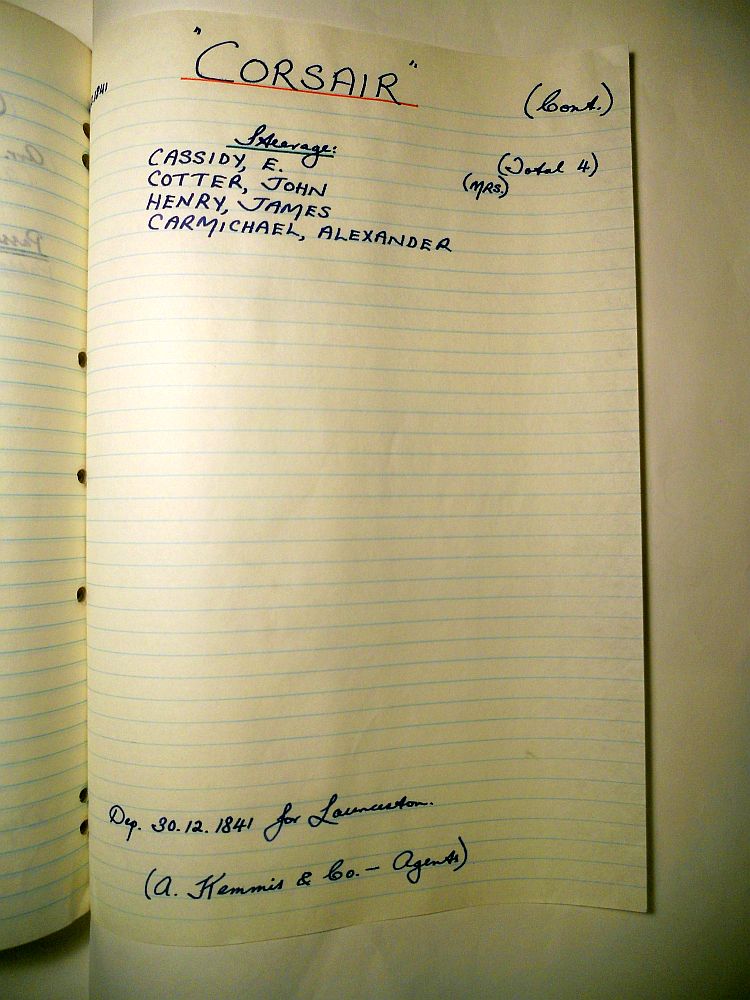 "CORSAIR"
(Cont.)
Steerage:
(Total 4)
CASSIDY, E. (MRS.)
COTTER, JOHN
HENRY, JAMES
CARMICHAEL, ALEXANDER
Dep. 30.12.1841 for Launceston.
(A. Kemmis & Co. — Agents)